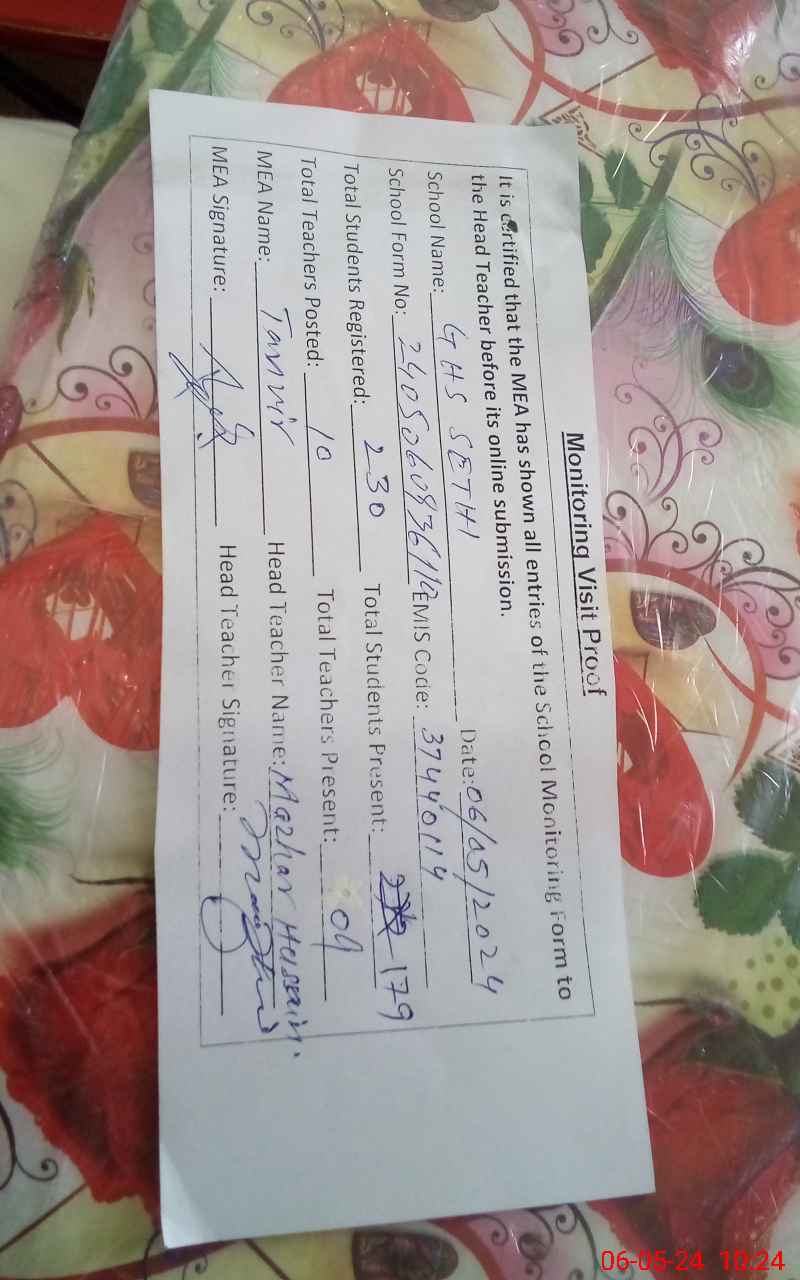 Monitoring Visit Proof
It is certified that the MEA has shown all entries of the School Monitoring Form to
the Head Teacher before its online submission.
School Name: GHS SETHI Date: 06/05/2024
School Form No: EMIS Code: 37440114
Total Students Registered: 230 Total Students Present: 179
Total Teachers Posted: 10 Total Teachers Present: 09
MEA Name: Tanvir Head Teacher Name: Mazhar Hussain.
MEA Signature: Head Teacher Signature:
06-05-24 10:24